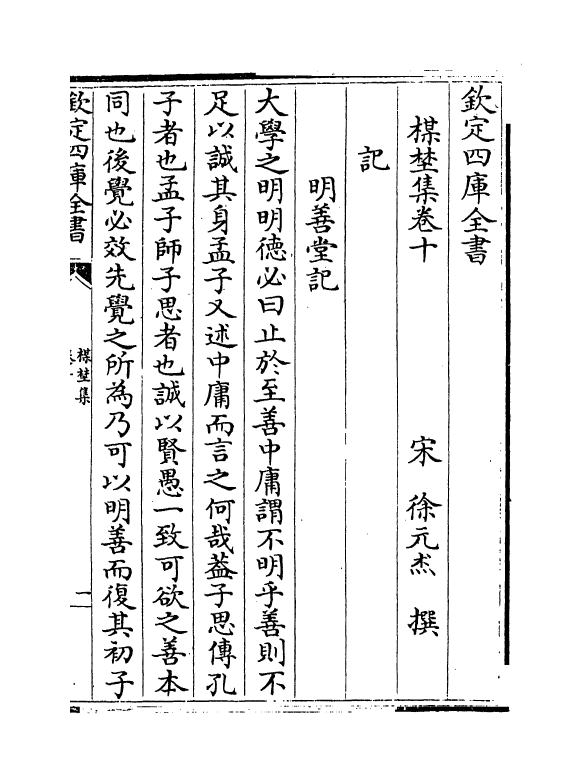 欽定四庫全書
楳埜集卷十
宋 徐元杰 撰
記
明善堂記
大學之明明德必曰止於至善中庸謂不明乎善則不
足以誠其身孟子又述中庸而言之何哉葢子思傳孔
子者也孟子師子思者也誠以賢愚一致可欲之善本
同也後覺必效先覺之所為乃可以明善而復其初子
欽定四庫全書
楳埜集
一